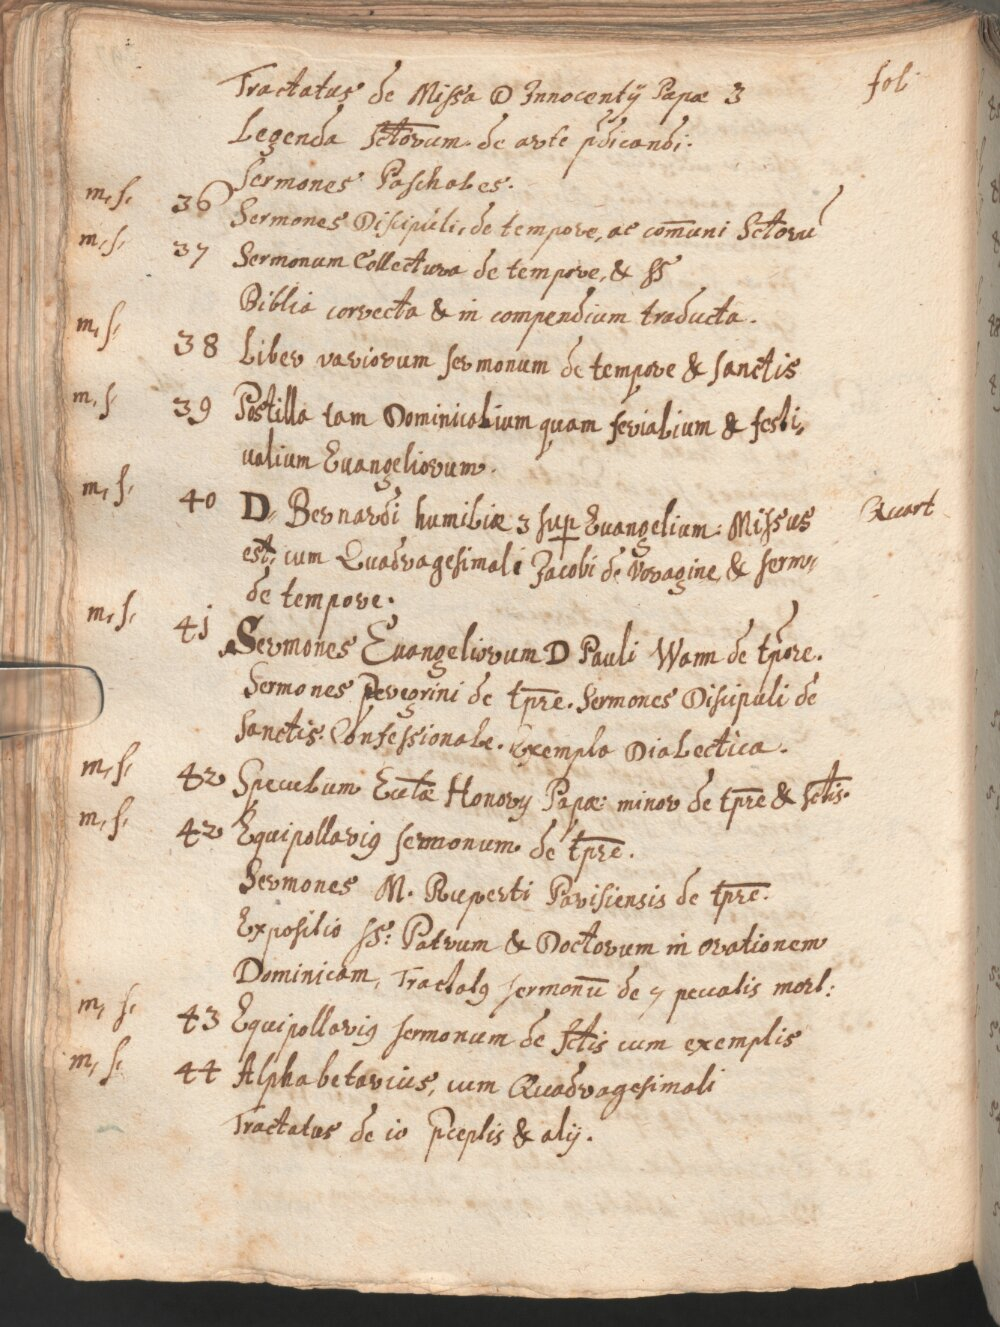 Tractatus de Missa D Innocentij Papæ 3 fol
Legenda Sctorum. de arte pdicandi.
Sermones Paschales.
m, s, 36 Sermones Discipuli, de tempore, ac comuni Sctoru
m, s, 37 Sermonum Collectura de tempore, & SS
Biblia correcta & in compendium traducta.
m, s, 38 Liber variorum sermonum de tempore & sanctis
m, s 39 Postilla tam Dominicalium quam ferialium & festi,
ualium Euangeliorum.
m, s, 40 D. Bernardi humiliæ 3 sup Euangelium: Missus Quart
est, cum Quadragesimali Jacobi de Voragine, & serm,
de tempore.
m, s, 41 Sermones Euangeliorum D Pauli Wann de tpore.
Sermones Peregrini de tpre. Sermones Discipuli de
sanctis. Confessionale. Exempla Dialectica.
m, s, 42 Speculum Ecclæ Honorij Papæ: minor de tpre & sctis.
m, s, 42 Equipollarig sermonum de tpre.
Sermones M. Ruperti Parisiensis de tpre.
Expositio SS: Patrum & Doctorum in orationem
Dominicam, Tractatg sermonu de 7 peccatis mort:
m, s, 43 Equipollarig sermonum de sctis cum exemplis
m, s, 44 Alphabetarius, cum Quadragesimali
Tractatus de io pceptis & alij.